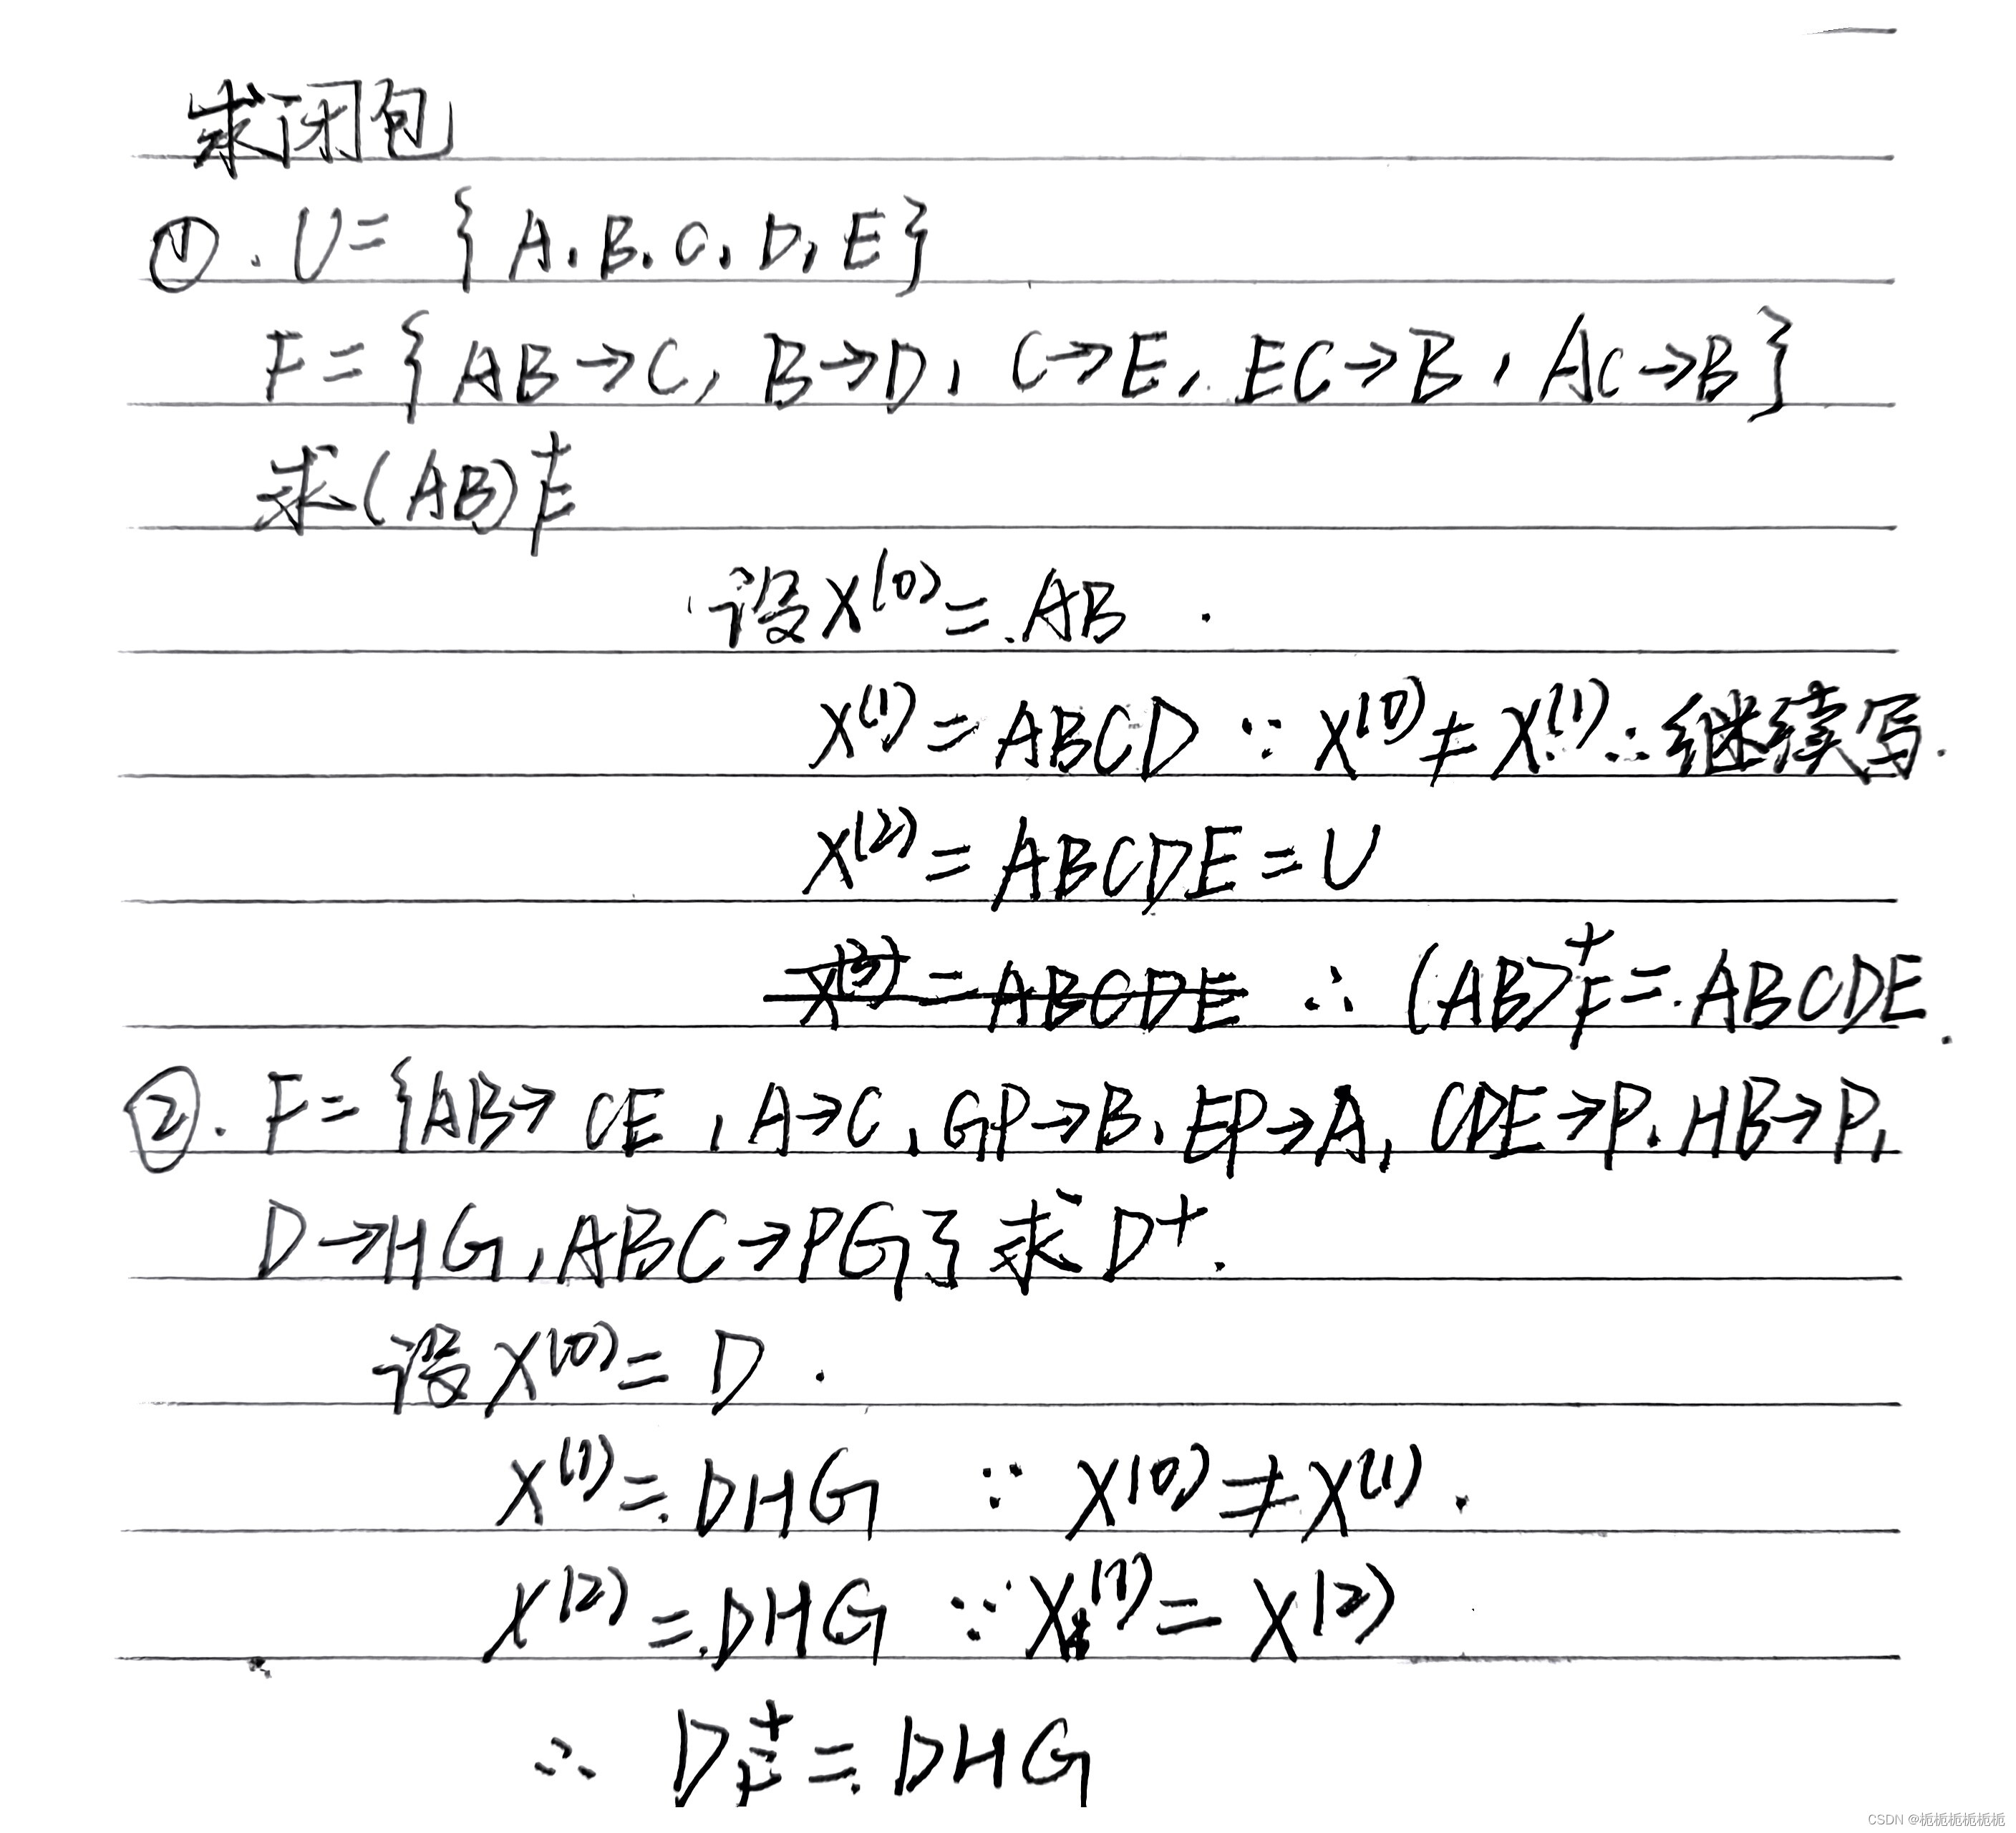 求闭包
①. U = { A, B, C, D, E }
F = { AB→C, B→D, C→E, EC→B, AC→B }
求(AB)⁺F
设X⁽⁰⁾ = AB.
X⁽¹⁾ = ABCD ∵ X⁽⁰⁾ ≠ X⁽¹⁾ ∴继续写.
X⁽²⁾ = ABCDE = U
X⁽³⁾ = ABCDE ∴ (AB)⁺F = ABCDE.
②. F = {AB→CE, A→C, GP→B, EP→A, CDE→P, HB→P,
D→HG, ABC→PG} 求D⁺.
设X⁽⁰⁾ = D.
X⁽¹⁾ = DHG ∵ X⁽⁰⁾ ≠ X⁽¹⁾.
X⁽²⁾ = DHG ∵ X⁽¹⁾ = X⁽²⁾
∴ D⁺F = DHG
CSDN @栀栀栀栀栀栀